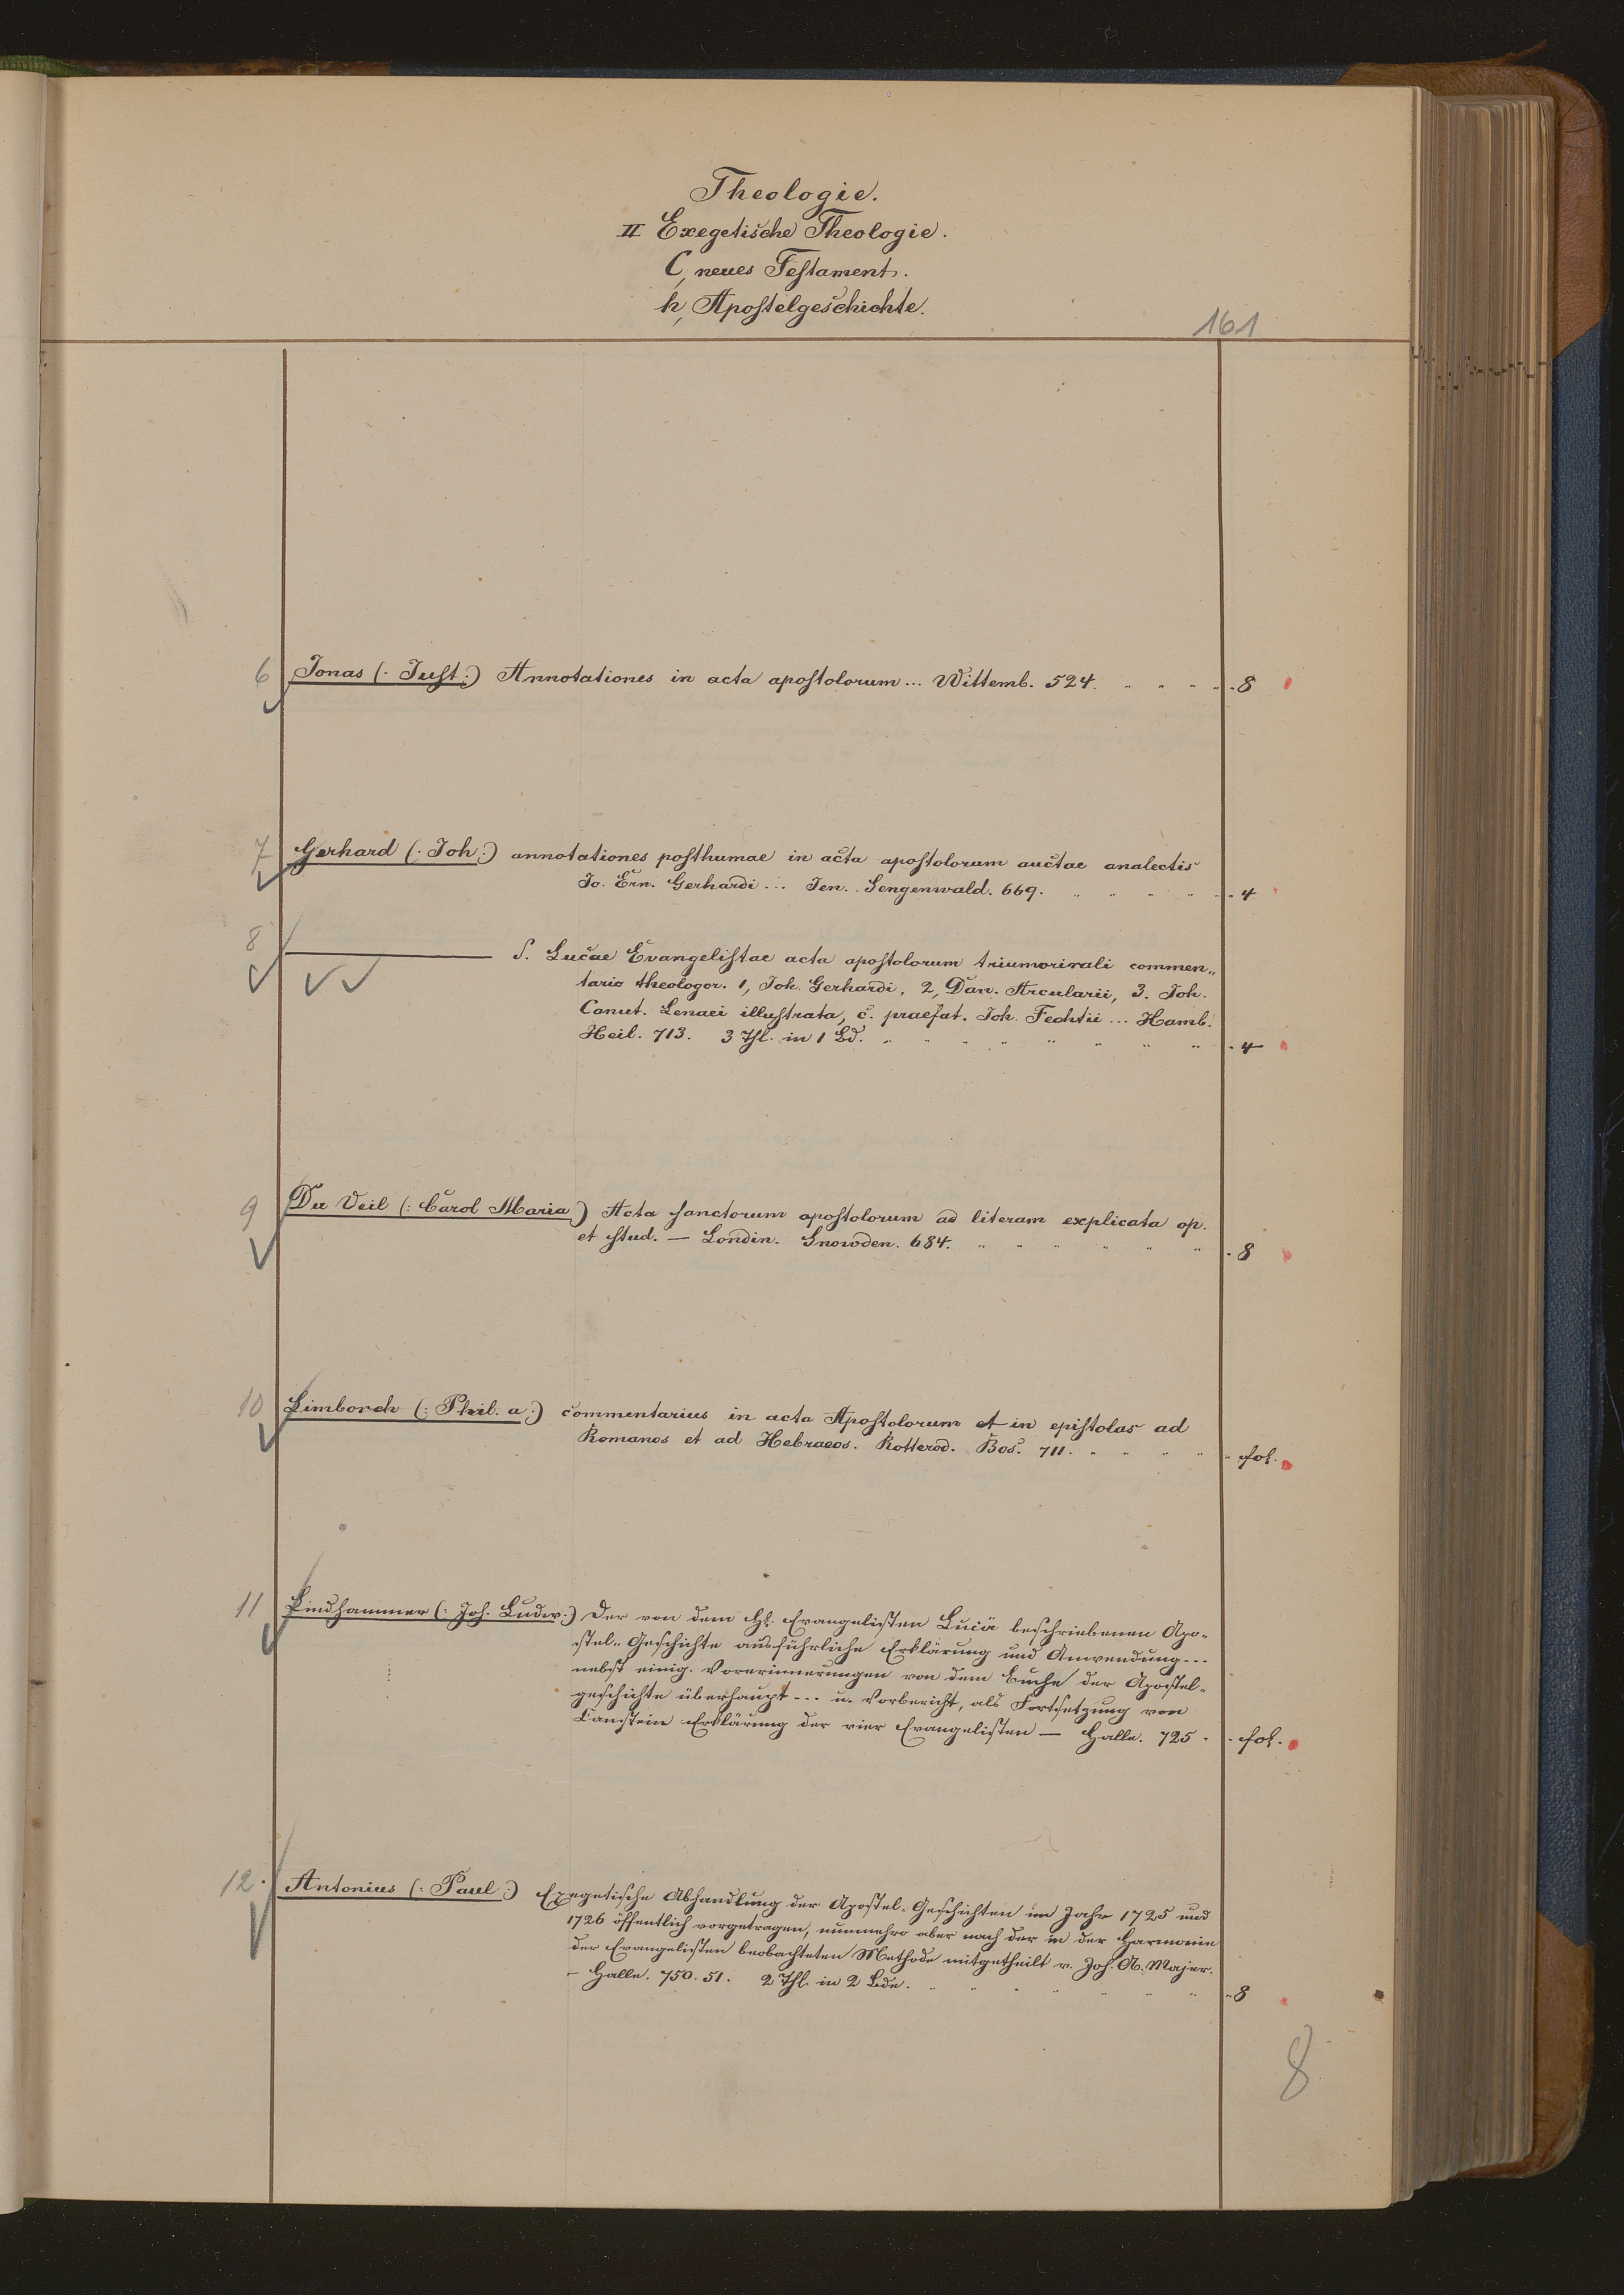 Theologie.
II Exegetische Theologie.
C, neues Testament.
h, Apostelgeschichte.
161
6 Jonas (: Just:) Annotationes in acta apostolorum ... Wittemb. 524. 8
7 Gerhard (: Joh:) annotationes posthumae in acta apostolorum auctae analectis
Jo. Ern. Gerhardi ... Jen. Sengenwald. 669. 4
8 ——— S. Lucae Evangelistae acta apostolorum triumvirali commen„
tario theologor. 1, Joh. Gerhardi, 2, Dan. Arcularii, 3. Joh.
Canut. Lenaei illustrata, c. praefat. Joh. Fechtii ... Hamb.
Heil. 713. 3 Thl. in 1 Bd. 4
9 Du Veil (: Carol Maria) Acta sanctorum apostolorum ad literam explicata op.
et stud. — Londin. Snowden. 684. 8
10 Limborch (: Phil. a:) commentarius in acta Apostolorum et in epistolas ad
Romanos et ad Hebraeos. Rotterod. Bos. 711. fol.
11 Lindhammer (: Joh. Ludw:) Der von dem Hl. Evangelisten Lucä beschriebenen Apo-
stel-Geschichte ausführliche Erklärung und Anwendung ...
nebst einig. Vorerinnerungen von dem Buche der Apostel-
geschichte überhaupt ... u. Vorbericht, als Fortsetzung von
Canstein Erklärung der vier Evangelisten — Halle. 725. fol.
12. Antonius (: Paul:) Exegetische Abhandlung der Apostel-Geschichten im Jahr 1725 und
1726 öffentlich vorgetragen, nunmehro aber nach der in der Harmonie
der Evangelisten beobachteten Methode mitgetheilt v. Joh. A. Majer.
– Halle. 750. 51. 2 Thl. in 2 Bde. 8
8